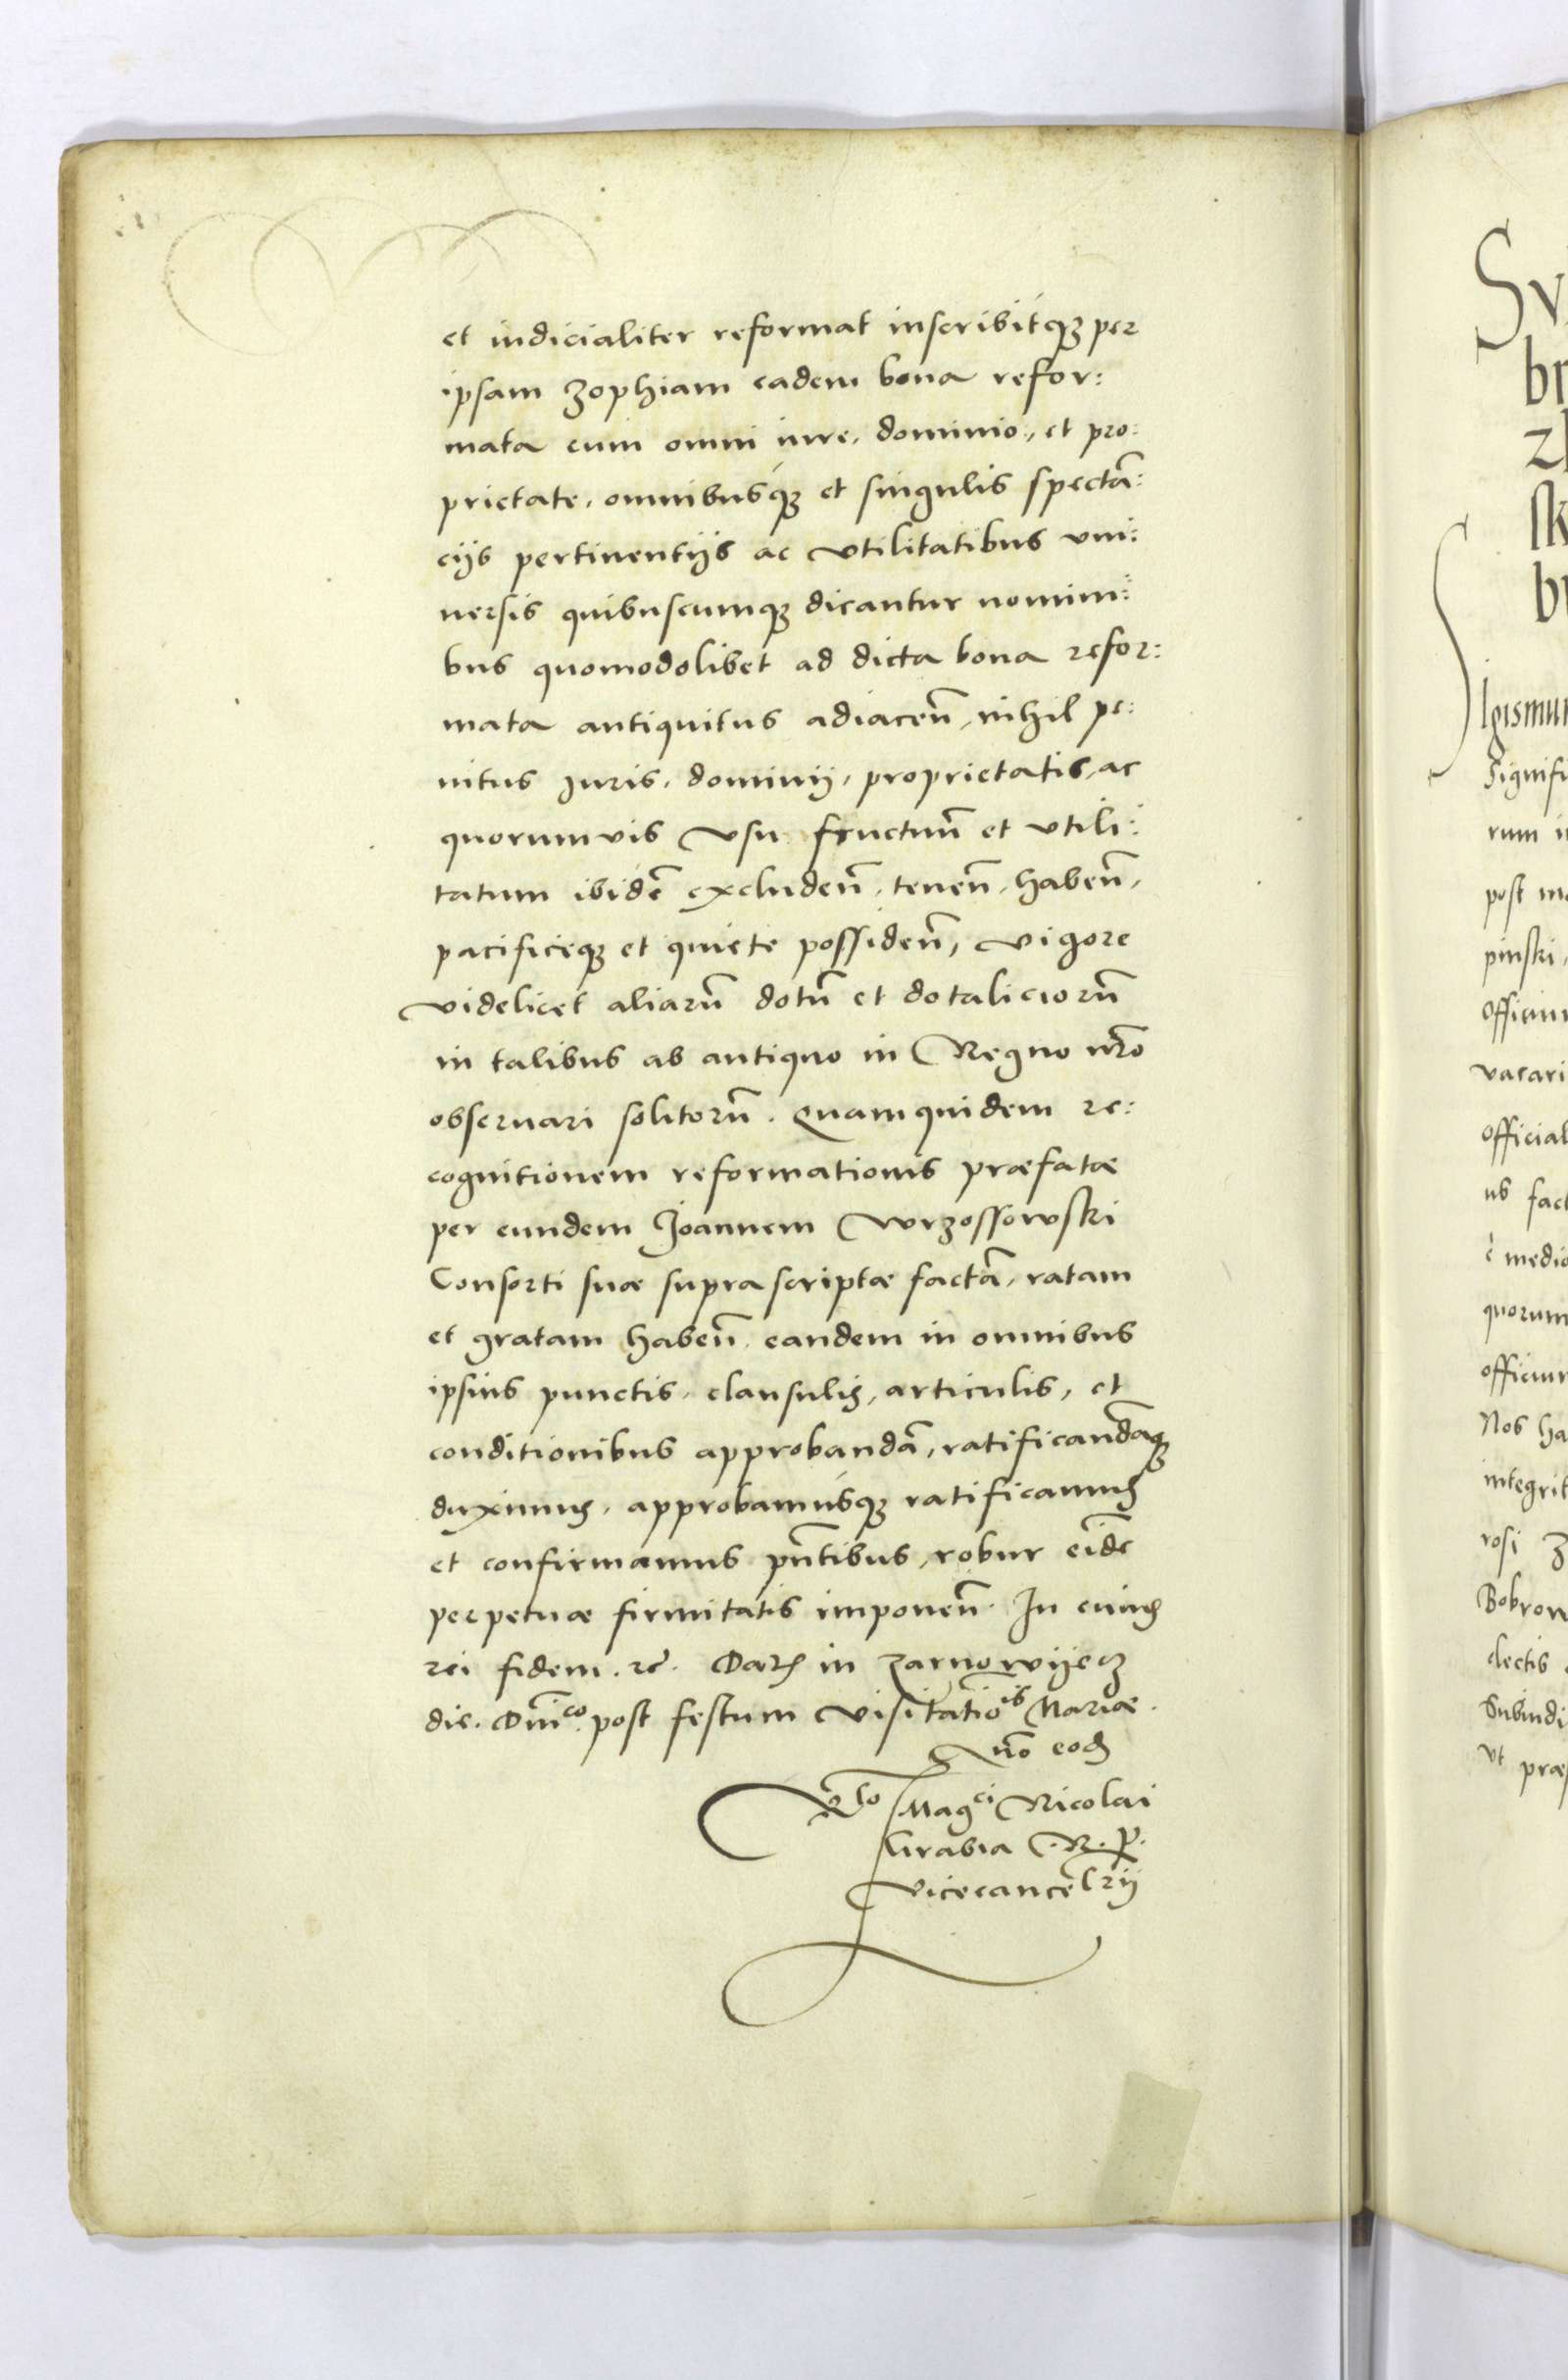 et iudicialiter reformat inscribitq3 per
ipsam Zophiam eadem bona refor:
mata cum omni iure, dominio, et pro:
prietate, omnibusq3 et singulis spectã:
cijs pertinentijs ac vtilitatibus vni:
uersis quibuscumq3 dicantur nomini:
bus quomodolibet ad dicta bona refor:
mata antiquitus adiaceñ, nihil pe:
nitus Juris, dominij, proprietatis, ac
quorumvis vsu fructuũ et vtili:
tatum ibidẽ excludeñ, teneñ, habeñ,
pacificeq3 et quiete possideñ, vigore
videlicet aliarũ dotũ et dotaliciorũ
in talibus ab antiquo in Regno nr̃o
obseruari solitorũ. Quamquidem re:
cognitionem reformationis præfatæ
per eundem Joannem Wrzossowski
Consorti suæ supra scriptæ factã, ratam
et gratam habeñ, eandem in omnibus
ipsius punctis, clausulis, articulis, et
conditionibus approbandã, ratificandãq3
duximus, approbamusq3 ratificamus
et confirmamus pñtibus, robur eidẽ
perpetuæ firmitatis imponeñ. In cuius
rei fidem. rc̃. Dat in Zarnowijecz
die. Dñico. post festum Visitatiõis Mariæ.
Año eod
Rlo Magci Nicolai
Grabia R. P.
Vicecancel̃rij
Sv
br
zl
sk
br
Sigismun
Signifi
rum i
post m
pinski,
officium
vacari
official
us fact
è medio
quorum
officium
Nos ha
integrit
rosi Z
Bobrow
electis
Subindi
vt præ